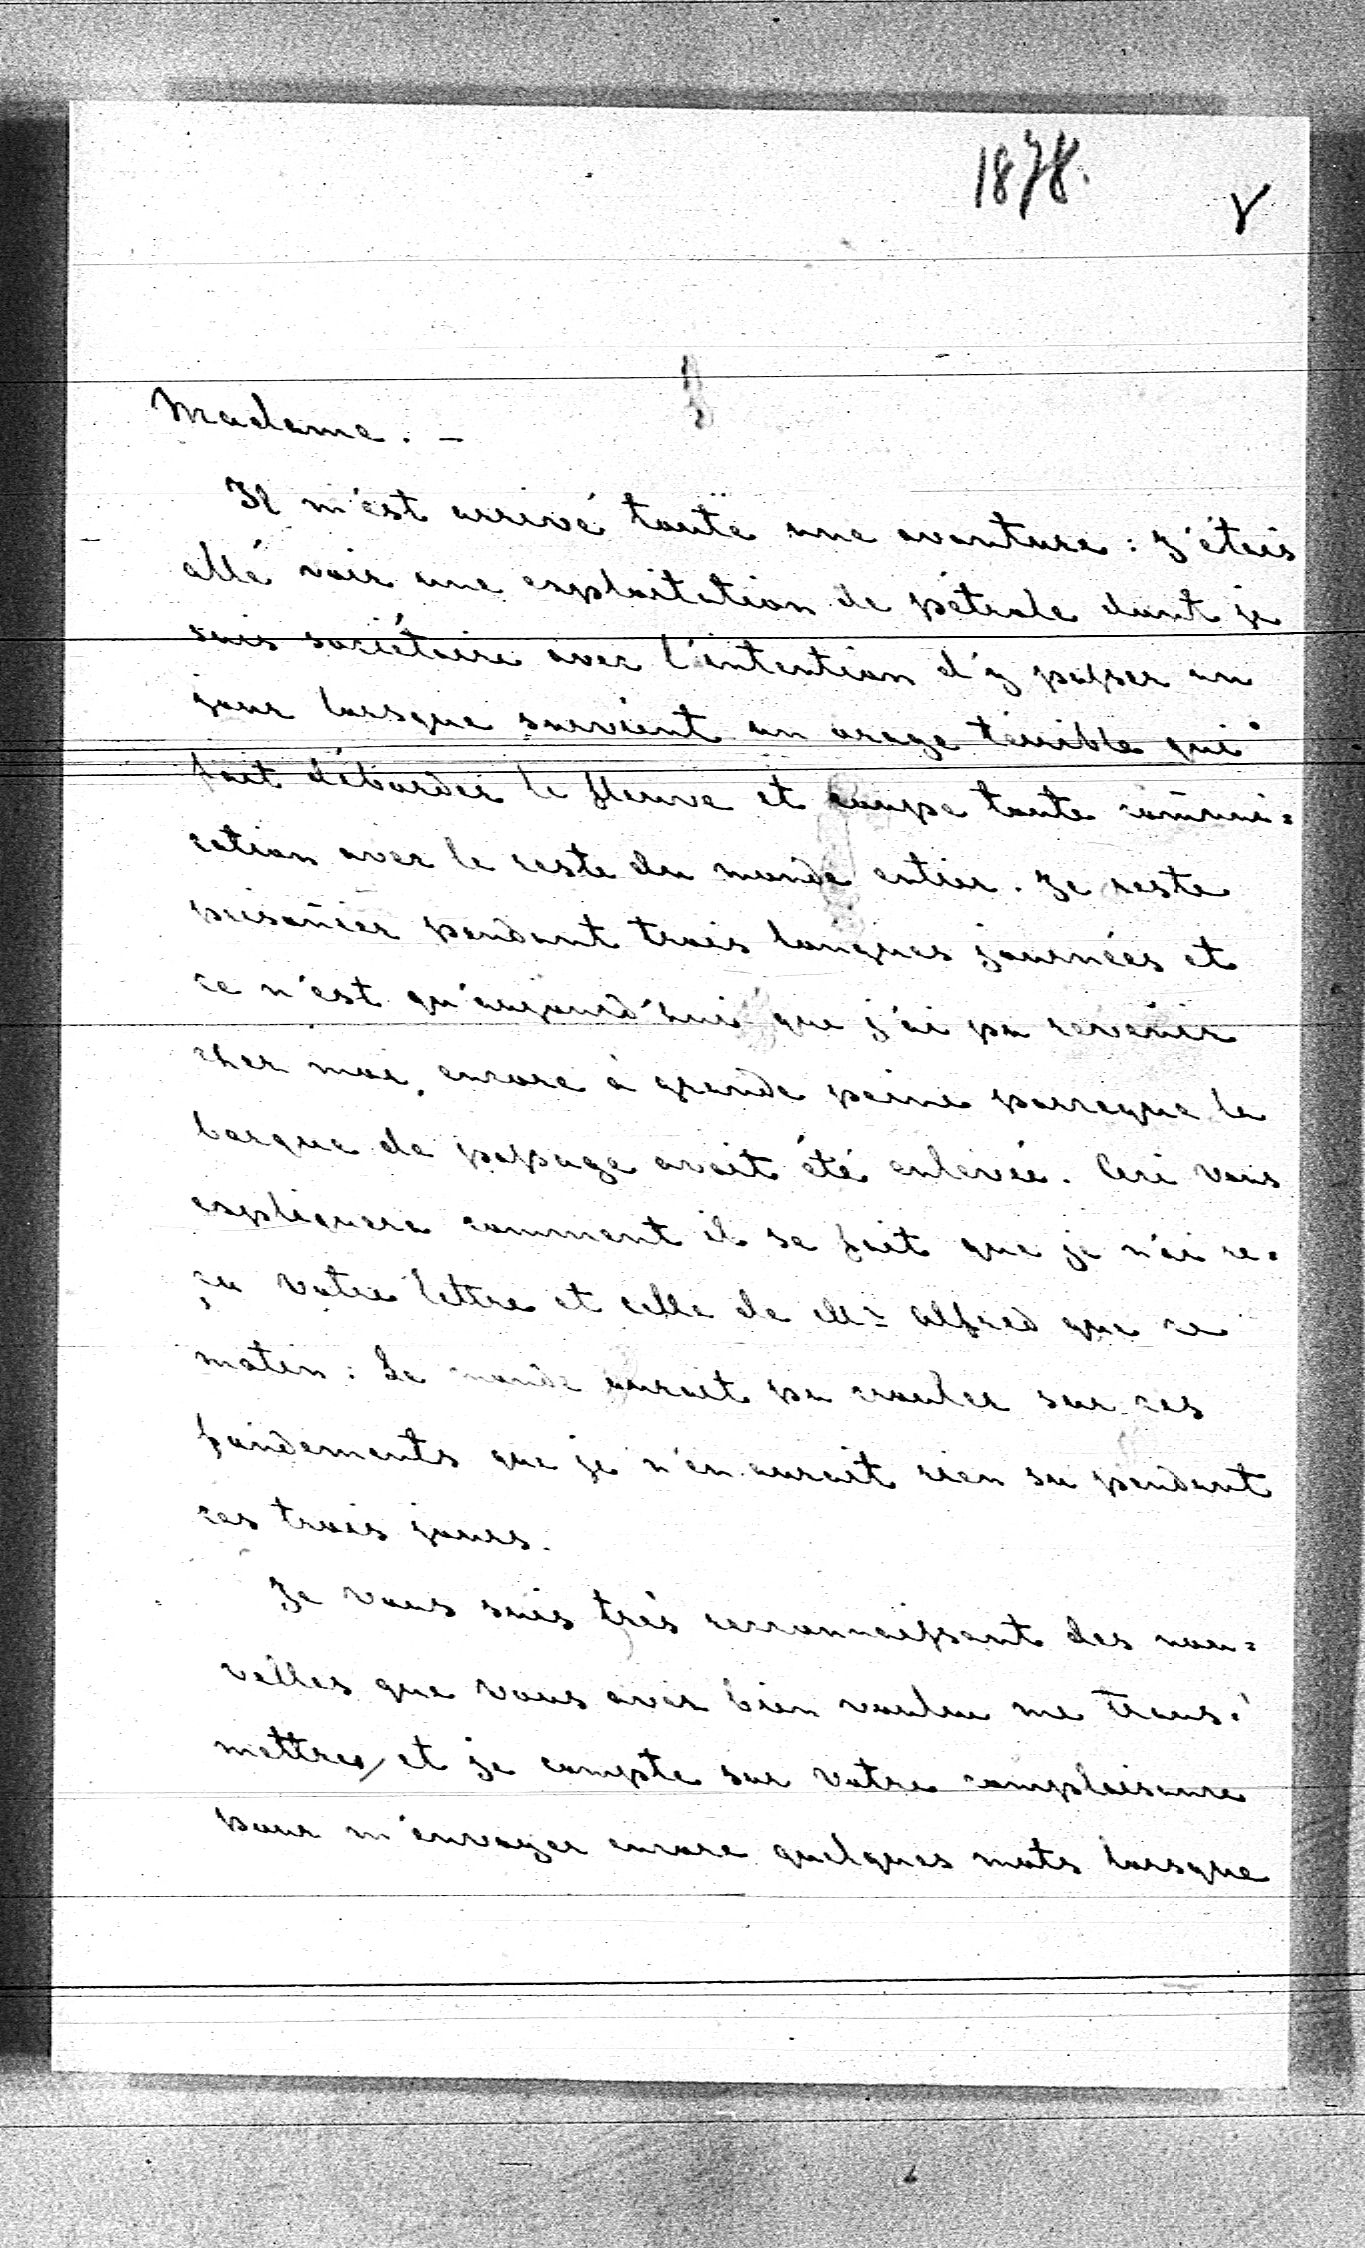 1878.
Madame. –
Il m'est arrivé toute une aventure : j'étais
allé voir une exploitation de pétrole dont je
suis sociétaire avec l'intention d'y passer un
jour lorsque survient un orage térrible qui
fait déborder le fleuve et coupe toute com̄uni=
cation avec le reste du monde entier. Je reste
prison̄ier pendant trois longues journées et
ce n'est qu'aujourd'hui que j'ai pu revenir
chez moi, encore à grande peine parceque la
barque de passage avait été enlevée. Ceci vous
expliquera comment il se fait que je n'ai re=
çu votre lettre et celle de Mr Alfred que ce
matin : Le monde aurait pu crouler sur ces
fondements que je n'en aurait rien su pendant
ces trois jours.
Je vous suis très reconnaissant des nou=
velles que vous avez bien voulu me trans=
mettres et je compte sur votre complaisance
pour m'envoyer encore quelques mots lorsque